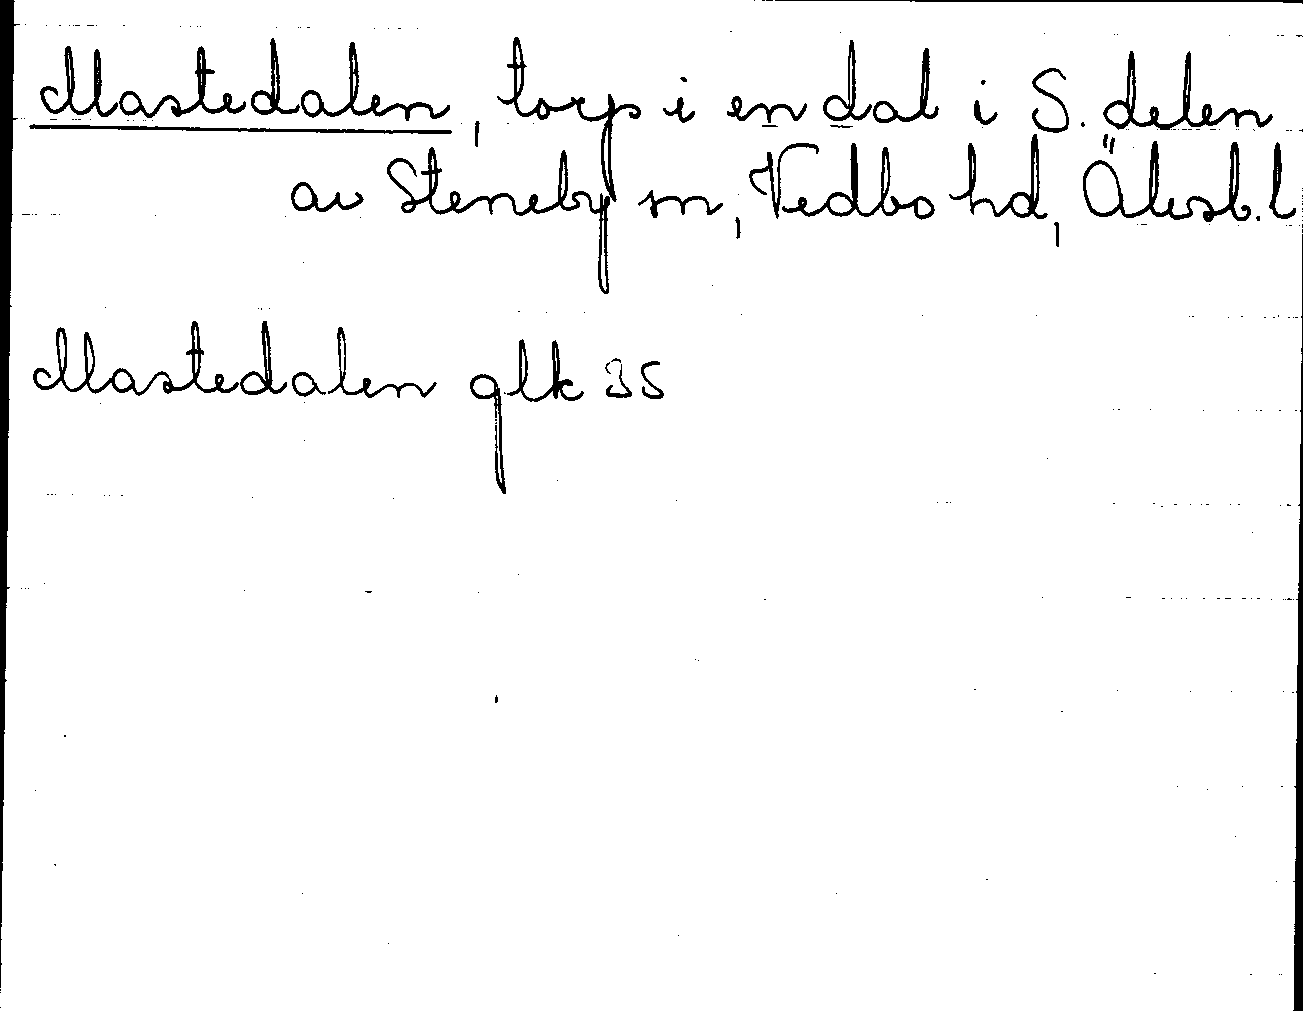 Mastedalen, torp i en dal i S. delen
av Steneby sn, Vedbo hd, Älvsb. l
Mastedalen glk 35